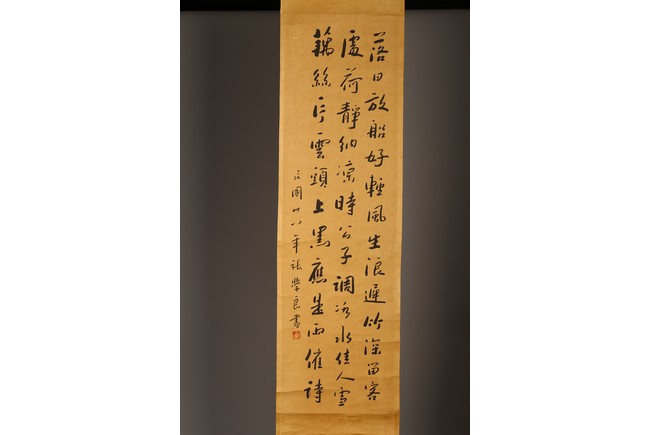 落日放船好輕風生浪遲竹深留客
處荷靜納凉時公子調冰水佳人雪
藕絲片雲頭上黑應是雨催詩
民國廿八年張學良書